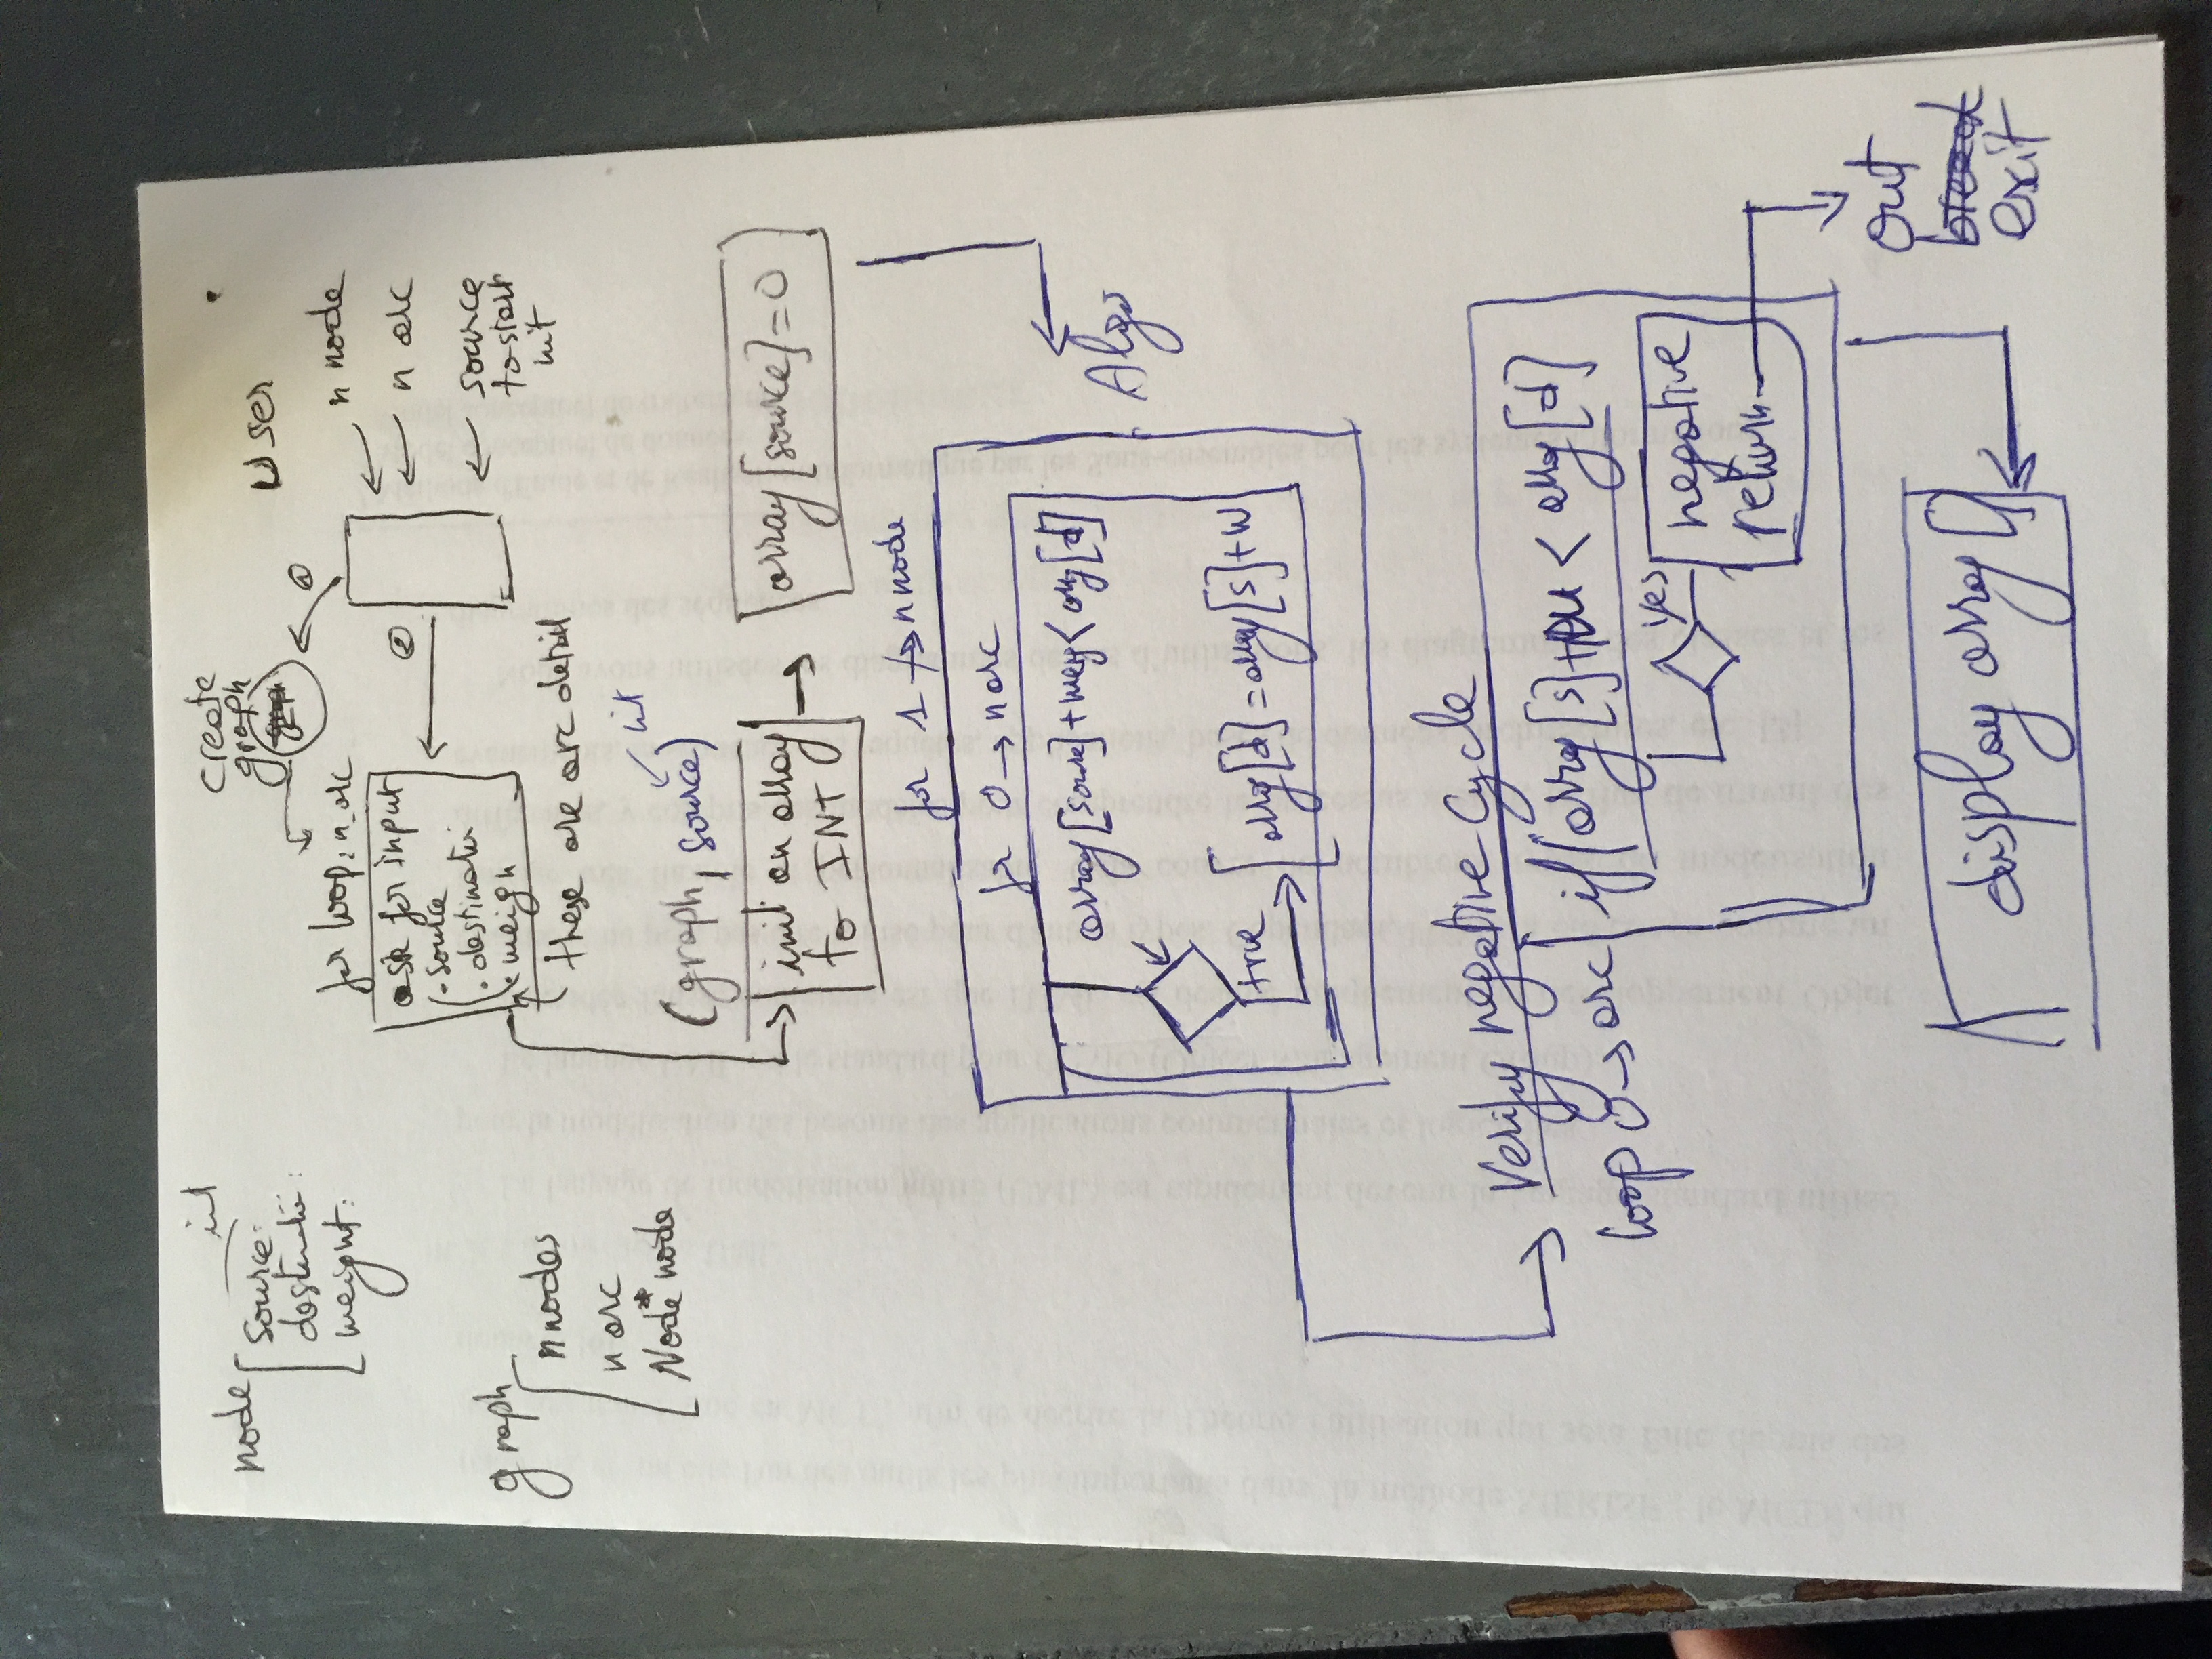 int
node
source:
destinati:
weight:
graph
n nodes
n arc
Node* node
create
graph
User
①
n node
n arc
source
to start
init
②
for loop: n_arc
ask for input
. source
. destinati
. weigh
these are arc detail
(graph, source)
int
init an array
to INT
array[source]=0
Algo
for 1 → n node
for 0 → n arc
array[source]+weig< array[d]
true
array[d]=array[s]+W
Verify negative Cycle
loop 0 → arc
if(array[s]+ < array[d]
yes
negative
return
out
exit
display array